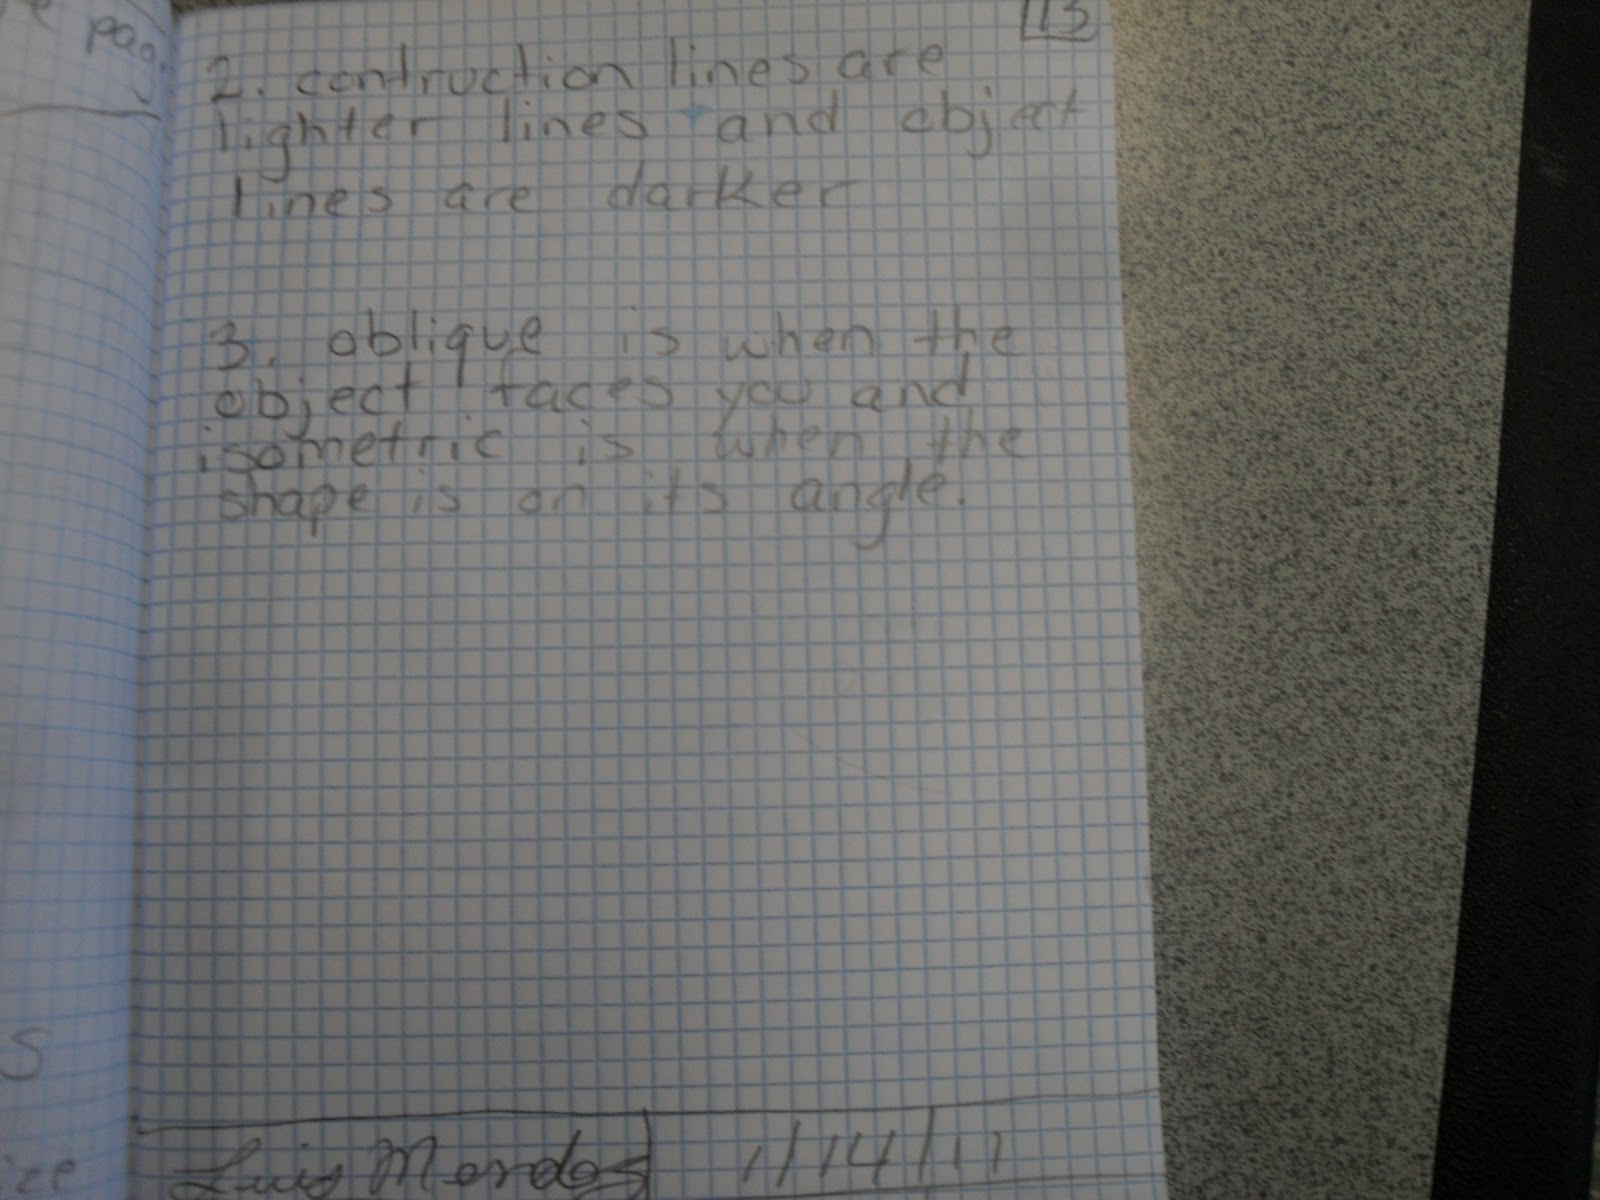 13
2. contruction lines are
lighter lines and object
lines are darker
3. oblique is when the
object faces you and
isometric is when the
shape is on its angle.
Luis 1/14/11
pag
S